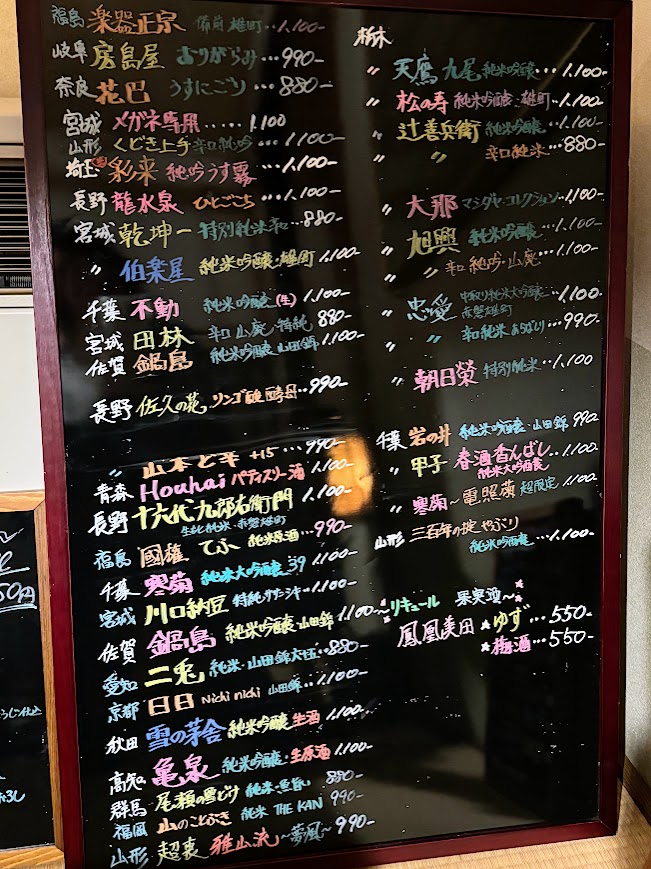 福島 楽器正宗 備前雄町…1.100-
岐阜 房島屋 おりがらみ…990-
奈良 花巴 うすにごり…880-
宮城 メガネ専用……1.100
山形 くどき上手 辛口純吟…1.100-
埼玉 彩來 純吟うす霧…1.100-
長野 龍水泉 ひとごこち…1.100-
宮城 乾坤一 特別純米辛口…880-
〃 伯楽星 純米吟醸・雄町 1.100-
千葉 不動 純米吟醸(生) 1.100-
宮城 田林 辛口 山廃 特純 880-
佐賀 鍋島 純米吟醸 山田錦 1.100-
長野 佐久の花 リンゴ酸酵母…990-
〃 山本ど辛 +15…990-
青森 Houhai パティスリー酒 1.100-
長野 十六代九郎右衛門 1.100-
生酛純米・赤磐雄町
福島 國権 てふ 純米原酒…990-
千葉 寒菊 純米大吟醸 39 1.100-
宮城 川口納豆 特純ササシキ…1.100-
佐賀 鍋島 純米吟醸・山田錦 1.100-
愛知 二兎 純米・山田錦六十五…880-
京都 日日 Nichi nichi 山田錦…1.100-
秋田 雪の茅舎 純米吟醸 生酒 1.100-
高知 亀泉 純米吟醸・生原酒 1.100-
群馬 尾瀬の雪どけ 純米・魚旨 880-
福岡 山のことぶき 純米 THE KAN 990-
山形 超裏 雅山流 ～夢風～ 990-
栃木
〃 天鷹 九尾 純米吟醸…1.100-
〃 松の寿 純米吟醸・雄町…1.100-
〃 辻善兵衛 純米吟醸…1.100-
〃 辛口純米…880-
〃 大那 マシダヤ・コレクション…1.100-
〃 旭興 純米吟醸…1.100-
〃 辛口純吟・山廃…1.100-
〃 忠愛 中取り純米大吟醸 赤磐雄町…1.100-
〃 辛口純米 あらばしり…990-
〃 朝日榮 特別純米…1.100
千葉 岩の井 純米吟醸・山田錦 990-
〃 甲子 春酒香んばし…1.100-
純米大吟醸
〃 寒菊～電照菊 超限定 1.100-
山形 三百年の掟 やぶり
純米吟醸…1.100-
～リキュール 果実酒～
鳳凰美田 ゆず…550-
梅酒…550-
50円